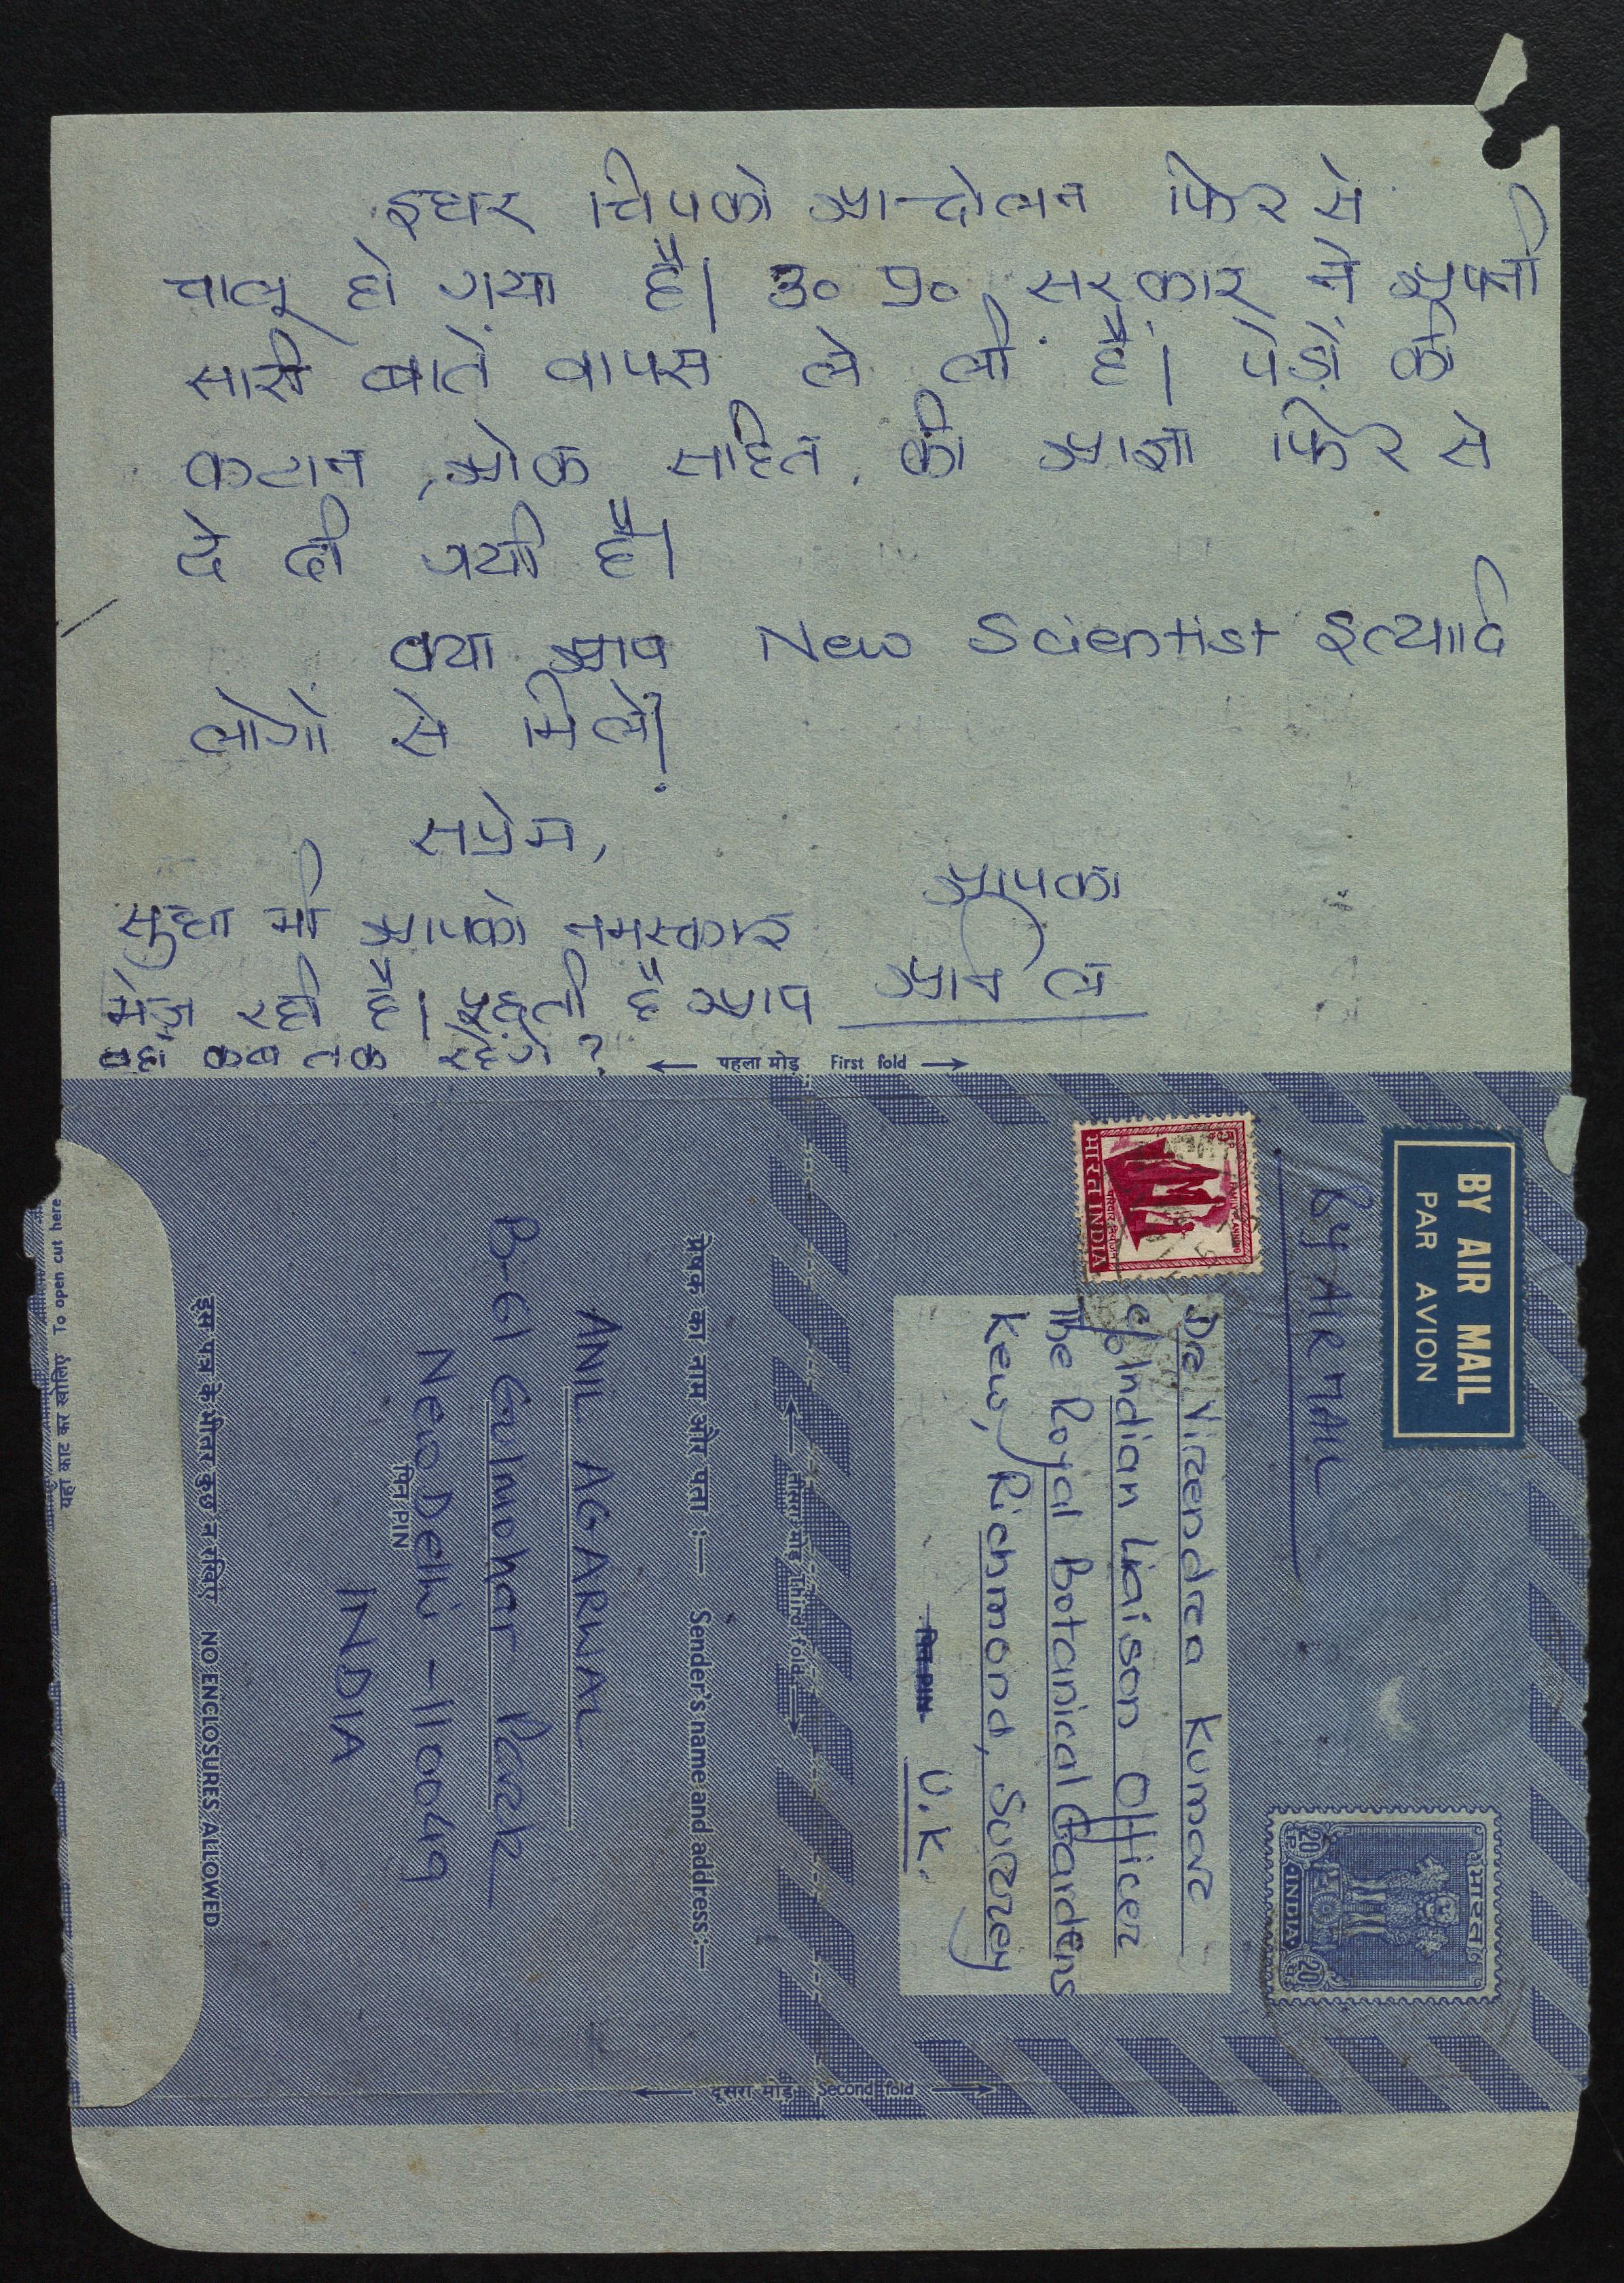 इधर चिपको आन्दोलन फिर से
चालू हो गया है। उ० प्र० सरकार ने अपनी
सारी बातें वापस ले ली हैं। पेड़ों की
कटान, ओक सहित, की आज्ञा फिर से
दे दी गयी है।
क्या आप New Scientist इत्यादि
लोगों से मिले?
सप्रेम,
आपका
अनिल
सुधा भी आपको नमस्कार
भेज रही है। पूछती है आप
वहाँ कब तक रहेंगे?
← पहला मोड़ First fold →
BY AIR MAIL
PAR AVION
By AIR MAIL
भारत INDIA
परिवार नियोजन
FAMILY PLANNING
भारत
20
20
INDIA
Dr Virendra Kumar
c/o Indian Liaison Officer
The Royal Botanical Gardens
Kew, Richmond, Surrey
पिन PIN
U.K.
← तीसरा मोड़ Third fold →
प्रेषक का नाम और पता :— Sender's name and address:—
ANIL AGARWAL
B-61 Gulmohar Park
New Delhi - 110049
पिन PIN
INDIA
इस पत्र के भीतर कुछ न रखिए NO ENCLOSURES ALLOWED
यहां काट कर खोलिए To open cut here
← दूसरा मोड़ Second fold →